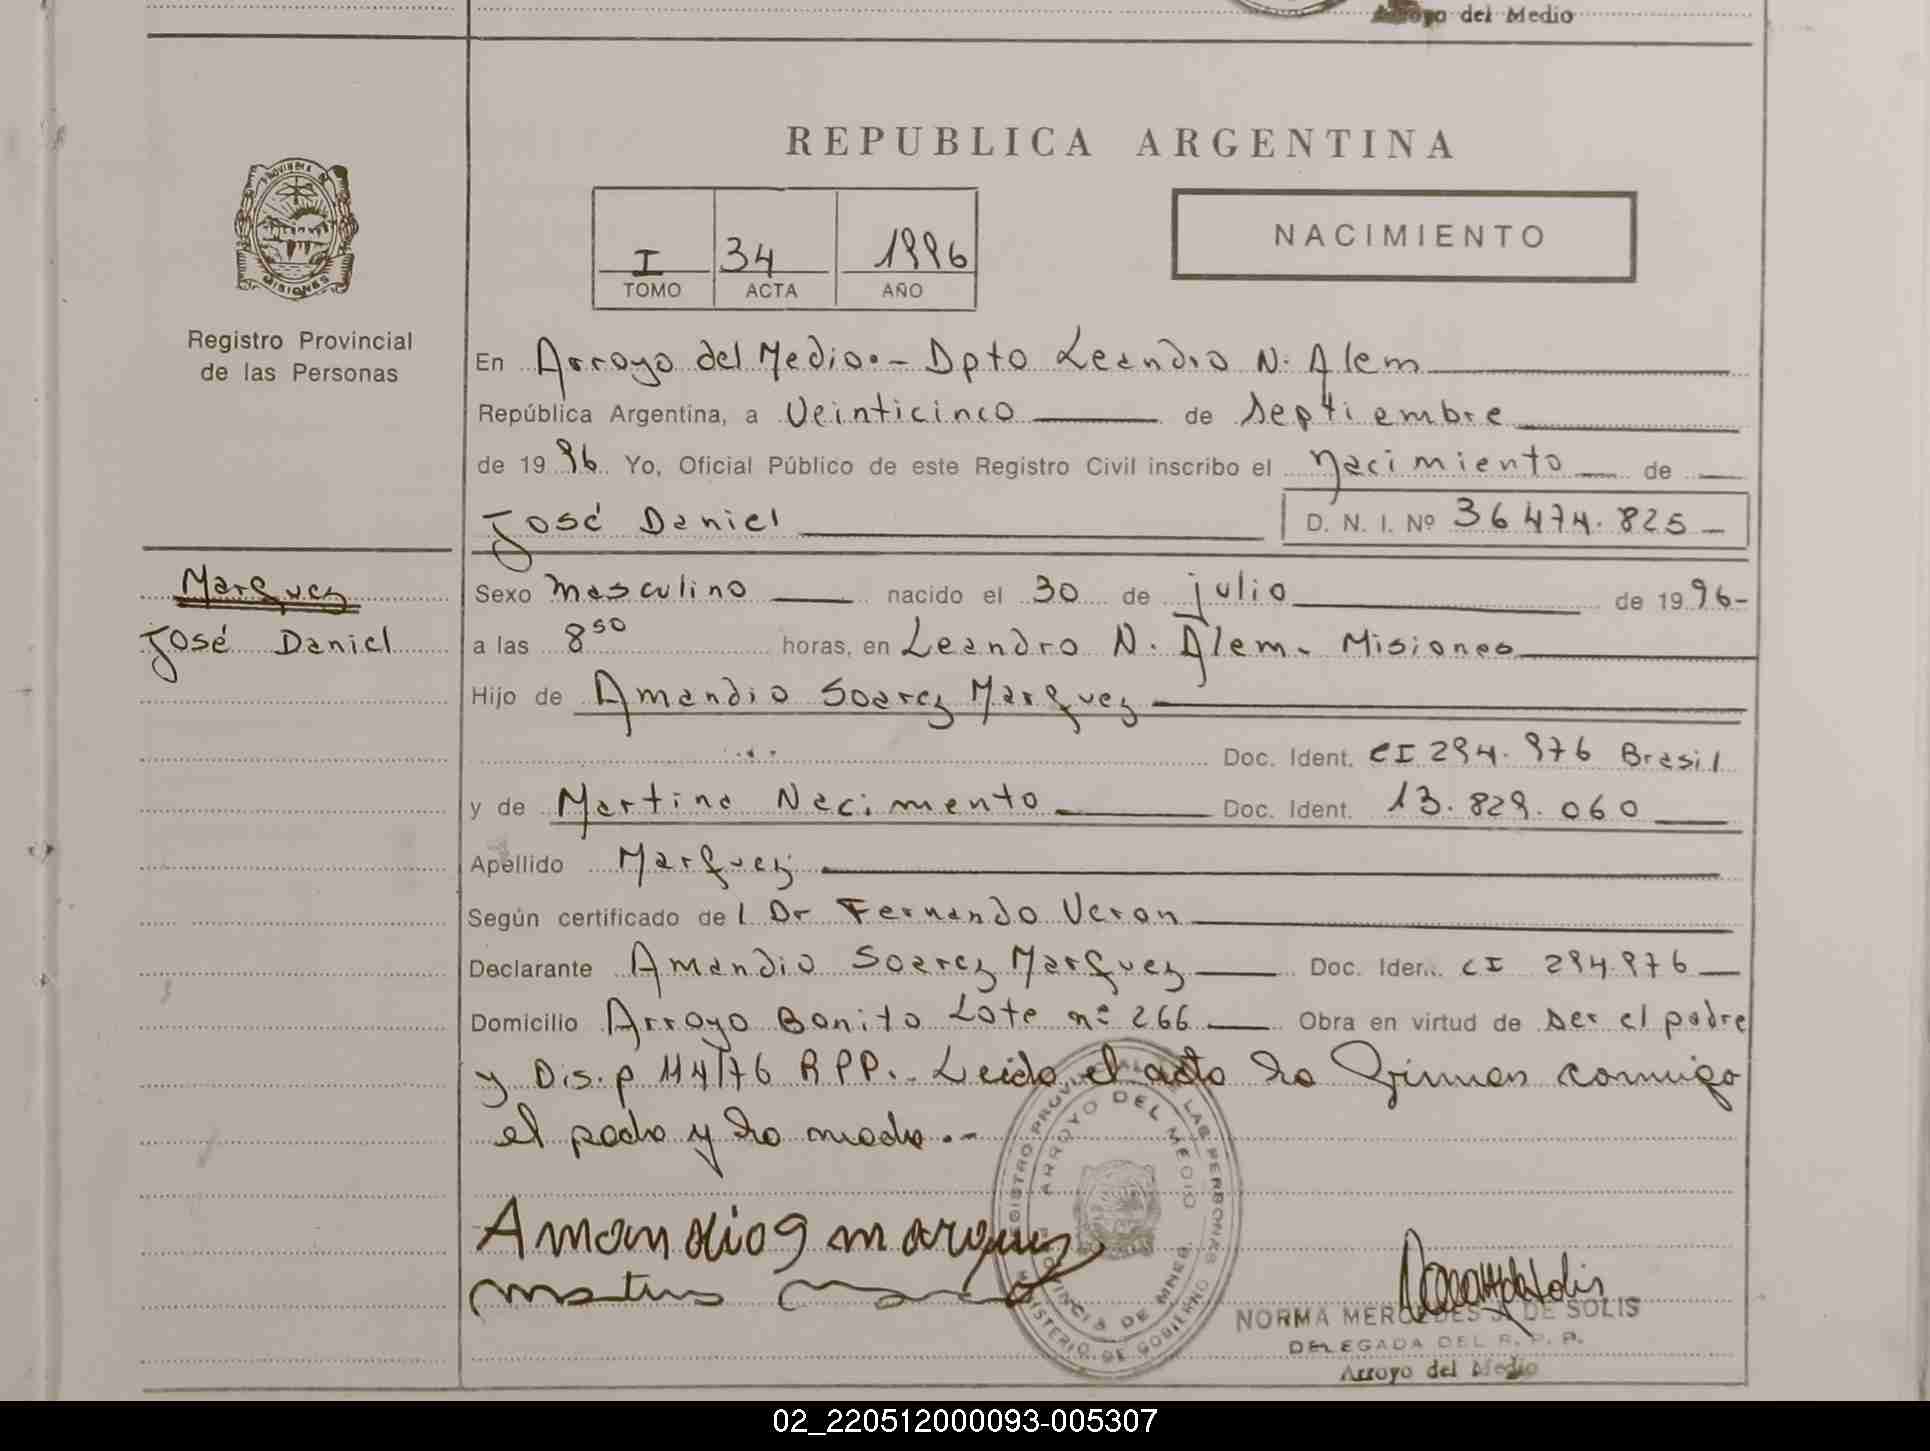 Arroyo del Medio
REPUBLICA ARGENTINA
PROVINCIA
MISIONES
Registro Provincial
de las Personas
I 34 1996
TOMO ACTA AÑO
NACIMIENTO
En Arroyo del Medio.- Dpto Leandro N. Alem
República Argentina, a Veinticinco de septiembre
de 1996. Yo, Oficial Público de este Registro Civil inscribo el Nacimiento de
José Daniel D. N. I. Nº 36474.825
Marquez
José Daniel
Sexo masculino nacido el 30 de julio de 1996-
a las 8 50 horas, en Leandro N. Alem. Misiones
Hijo de Amandio Soarez Marquez
Doc. Ident. CI 294.976 Brasil
y de Martina Nacimento Doc. Ident. 13.829.060
Apellido Marquez
Según certificado del Dr Fernando Veron
Declarante Amandio Soarez Marquez Doc. Iden. CI 294.976
Domicilio Arroyo Bonito Lote nº 266 Obra en virtud de ser el padre
y Dis.p 114/76 RPP.- Leido el acta la firman comigo
el padre y la madre.-
REGISTRO PROVINCIAL DE LAS PERSONAS
ARROYO DEL MEDIO
PROVINCIA DE MNES.
MINISTERIO DE GOBIERNO
Amandio S marques
NORMA MERCEDES A. DE SOLIS
DELEGADA DEL R. P. P.
Arroyo del Medio
02_220512000093-005307